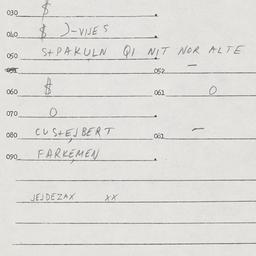 030 $
040 $ )-VIJES
050 S+PAKULN QI NIT NOR ALTE
052 –
060 $ 061 0
070 0
080 CUS+EJBERT 081 –
090 FARKEMEN
JEJDEZAX XX